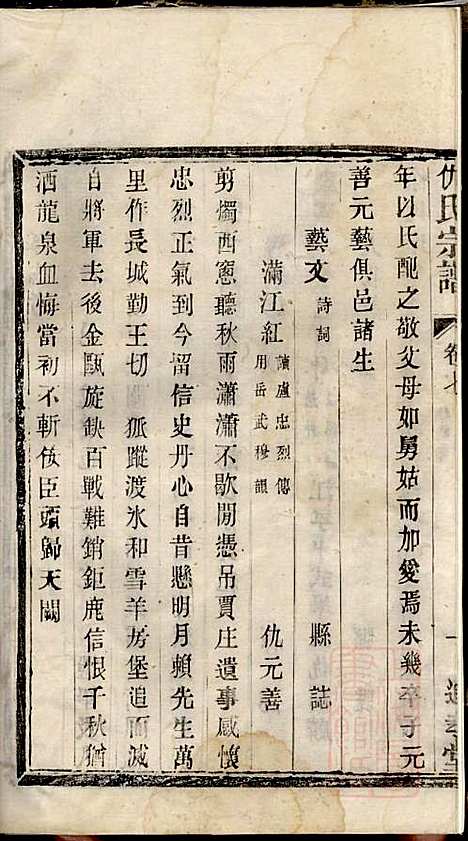 仇氏宗譜 卷七 一 追孝堂
年以氏配之敬父母如舅姑而加愛焉未幾卒子元
善元藝俱邑諸生
藝文 詩詞 縣誌
滿江紅 讀盧忠烈傳 用岳武穆韻 仇元善
剪燭西窻聽秋雨瀟瀟不歇閒憑弔賈庄遺事感懷
忠烈正氣到今留信史丹心自昔懸明月賴先生萬
里作長城勤王切 狐蹤渡氷和雪羊房堡追而滅
自將軍去後金甌旋缺百戰難銷鉅鹿信恨千秋猶
洒龍泉血悔當初不斬佞臣頭歸天闕